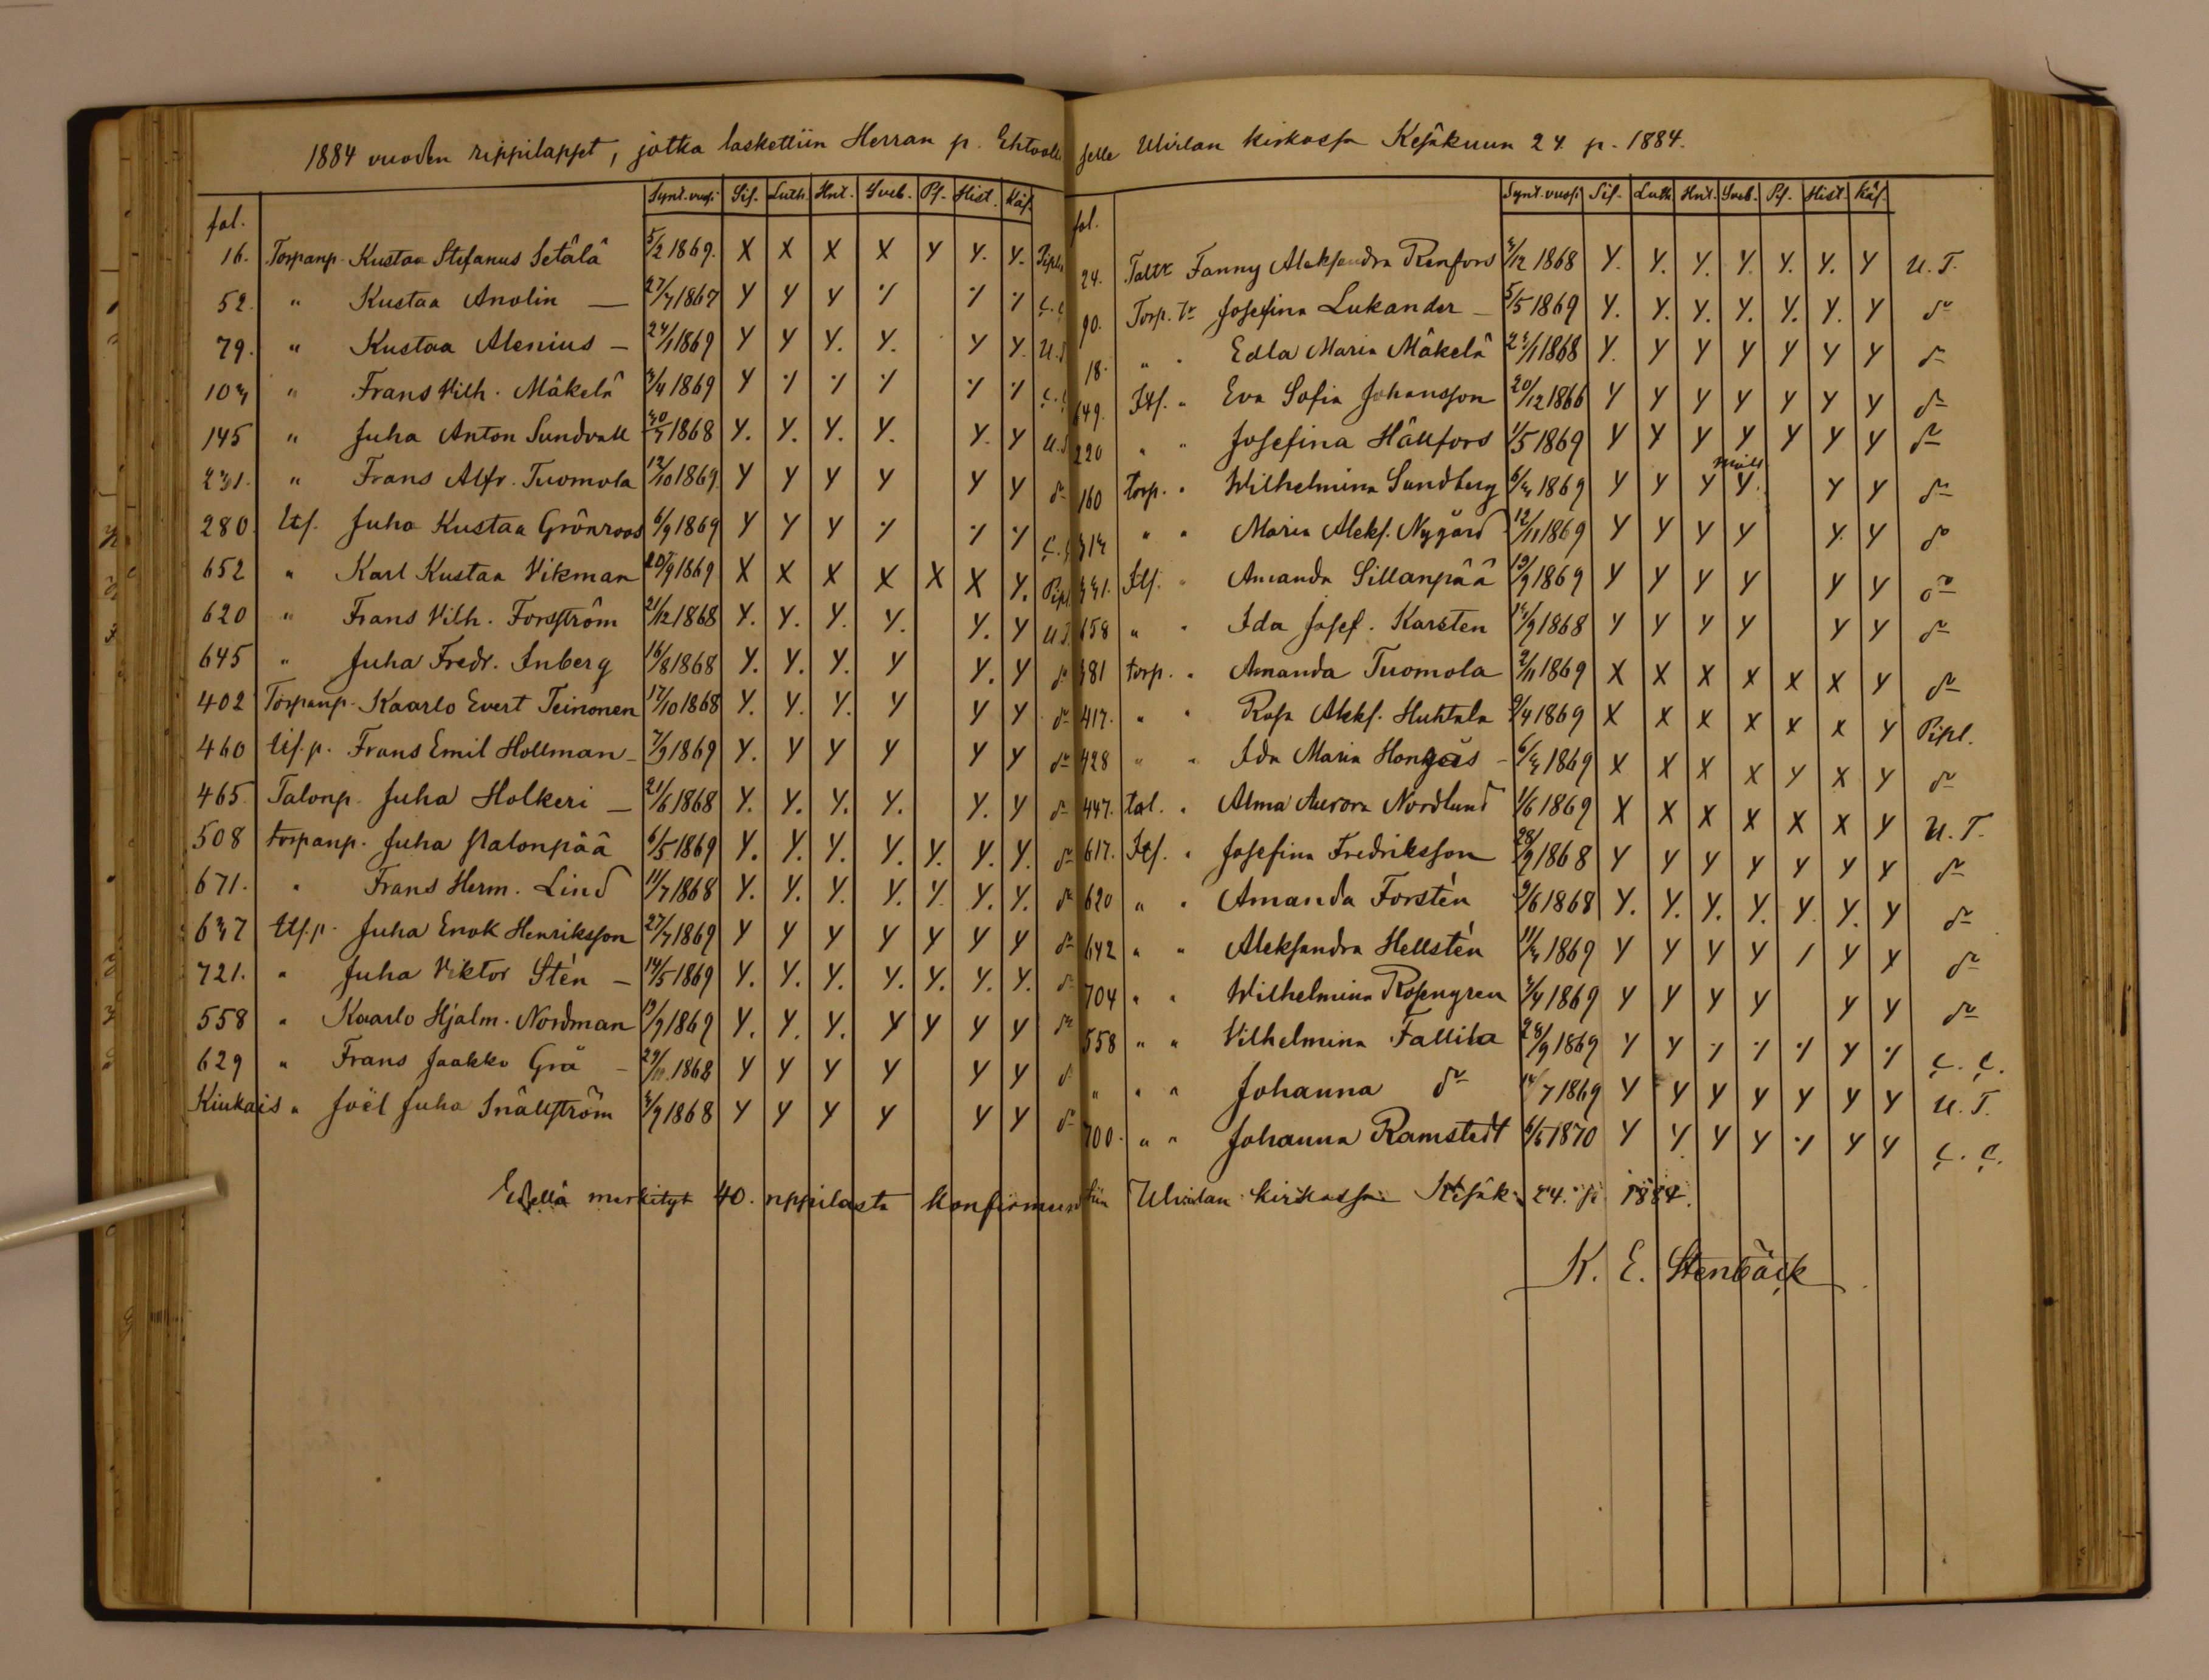 1884 vuoden rippilapset, jotka laskettiin Herran p. Ehtoolliselle Ulvilan kirkossa Kesäkuun 24 p. 1884.
fol. Synt. vuosi Sis. Luth. Hnt. Sveb. Ps. Hist. Käs.
16. Torpanp. Kustaa Stefanus Setälä 5/2 1869. X X X X Y Y. Y. Pipl.
52. " Kustaa Anolin — 27/7 1867 Y Y Y ·/· ·/· ·/· Ç. Ç.
79. " Kustaa Alenius — 24/1 1869 Y Y Y. Y. Y Y. U. T.
103 " Frans Vilh. Mäkelä 3/4 1869 Y ·/· ·/· ·/· ·/· ·/· Ç. Ç.
145 " Juha Anton Sundvall 30/7 1868 Y. Y. Y. Y. Y. Y U. T.
231. " Frans Alfr. Tuomola 12/10 1869. Y Y Y Y Y Y do
280. Its. Juha Kustaa Grönroos 6/9 1869 Y Y Y ·/· ·/· ·/· Ç. Ç.
652 " Karl Kustaa Vikman 20/9 1869 X X X X X X Y. Pipl.
620 " Frans Vilh. Forsström 21/12 1868 Y. Y. Y. Y. Y. Y U. T.
645 " Juha Fredr. Inberg 16/8 1868 Y. Y. Y. Y Y. Y do
402 Torpanp. Kaarlo Evert Teinonen 17/10 1868 Y. Y. Y. Y Y Y do
460 Its. p. Frans Emil Hollman — 7/9 1869 Y. Y Y Y Y Y do
465 Talonp. Juha Holkeri — 21/6 1868 Y. Y. Y. Y. Y. Y do
508 torpanp. Juha Palonpää 6/5 1869 Y. Y. Y. Y. Y. Y. Y. do
671. " Frans Herm. Lind 11/7 1868 Y. Y. Y. Y. Y. Y. Y. do
637 Its. p. Juha Enok Henriksson 27/7 1869 Y Y Y Y Y Y Y do
721. " Juha Viktor Stén — 14/5 1869 Y. Y. Y. Y. Y. Y. Y. do
558 " Kaarlo Hjalm. Nordman 9/9 1869 Y. Y. Y. Y Y Y Y do
629 " Frans Jaakko Grå — 29/11 1868 Y Y Y Y Y Y do
Kiukais " Joël Juha Snällström 3/9 1868 Y Y Y Y Y Y do
fol. Synt. vuosi Sis. Luth. Hnt. Sveb. Ps. Hist. Käs.
24. Taltr Fanny Aleksandra Renfors 3/12 1868 Y. Y. Y. Y. Y. Y. Y U. T.
90. Torp. tr Josefina Lukander — 5/5 1869 Y. Y. Y. Y. Y. Y. Y do
18. " " Edla Maria Mäkelä 23/11 1868 Y. Y Y Y Y Y Y do
649. Its. " Eva Sofia Johansson 20/12 1866 Y Y Y Y Y Y Y do
220 " " Josefina Hällfors 1/5 1869 Y Y Y Y Y Y Y do
160 torp. " Wilhelmina Sundberg 6/3 1869 Y Y Y Y. Y Y do
" " Maria Aleks. Nygård 12/11 1869 Y Y Y Y Y Y do
331. Its. " Amanda Sillanpää 19/9 1869 Y Y Y Y Y Y do
158 " " Ida Josef. Karsten 14/9 1868 Y Y Y Y Y Y do
381 torp. " Amanda Tuomola 2/11 1869 X X X X X X Y do
417. " " Rosa Aleks. Huhtala 9/4 1869 X X X X X X Y Pipl.
428 " " Ida Maria Hongos — 6/3 1869 X X X X Y X Y do
447. tal. " Alma Aurora Nordlund 1/6 1869 X X X X X X Y U. T.
617. Its. " Josefina Fredriksson 28/9 1868 Y Y Y Y Y Y Y do
620 " " Amanda Forstén 9/6 1868 Y. Y. Y. Y. Y. Y. Y do
642 " " Aleksandra Hellstén 11/3 1869 Y Y Y Y / Y Y do
704 " " Wilhelmina Rosengren 3/4 1869 Y Y Y Y Y Y do
558 " " Vilhelmina Fallila 28/9 1869 Y Y ·/· ·/· ·/· Y ·/· Ç. Ç.
" " " Johanna do 14/7 1869 Y Y Y Y Y Y Y U. T.
700. " " Johanna Ramstedt 6/5 1870 Y Y Y Y ·/· Y Y Ç. Ç.
Edellä merkityt 40. rippilasta konfirmeerattiin Ulvilan kirkossa Kesäk. 24. p. 1884.
K. E. Stenbäck